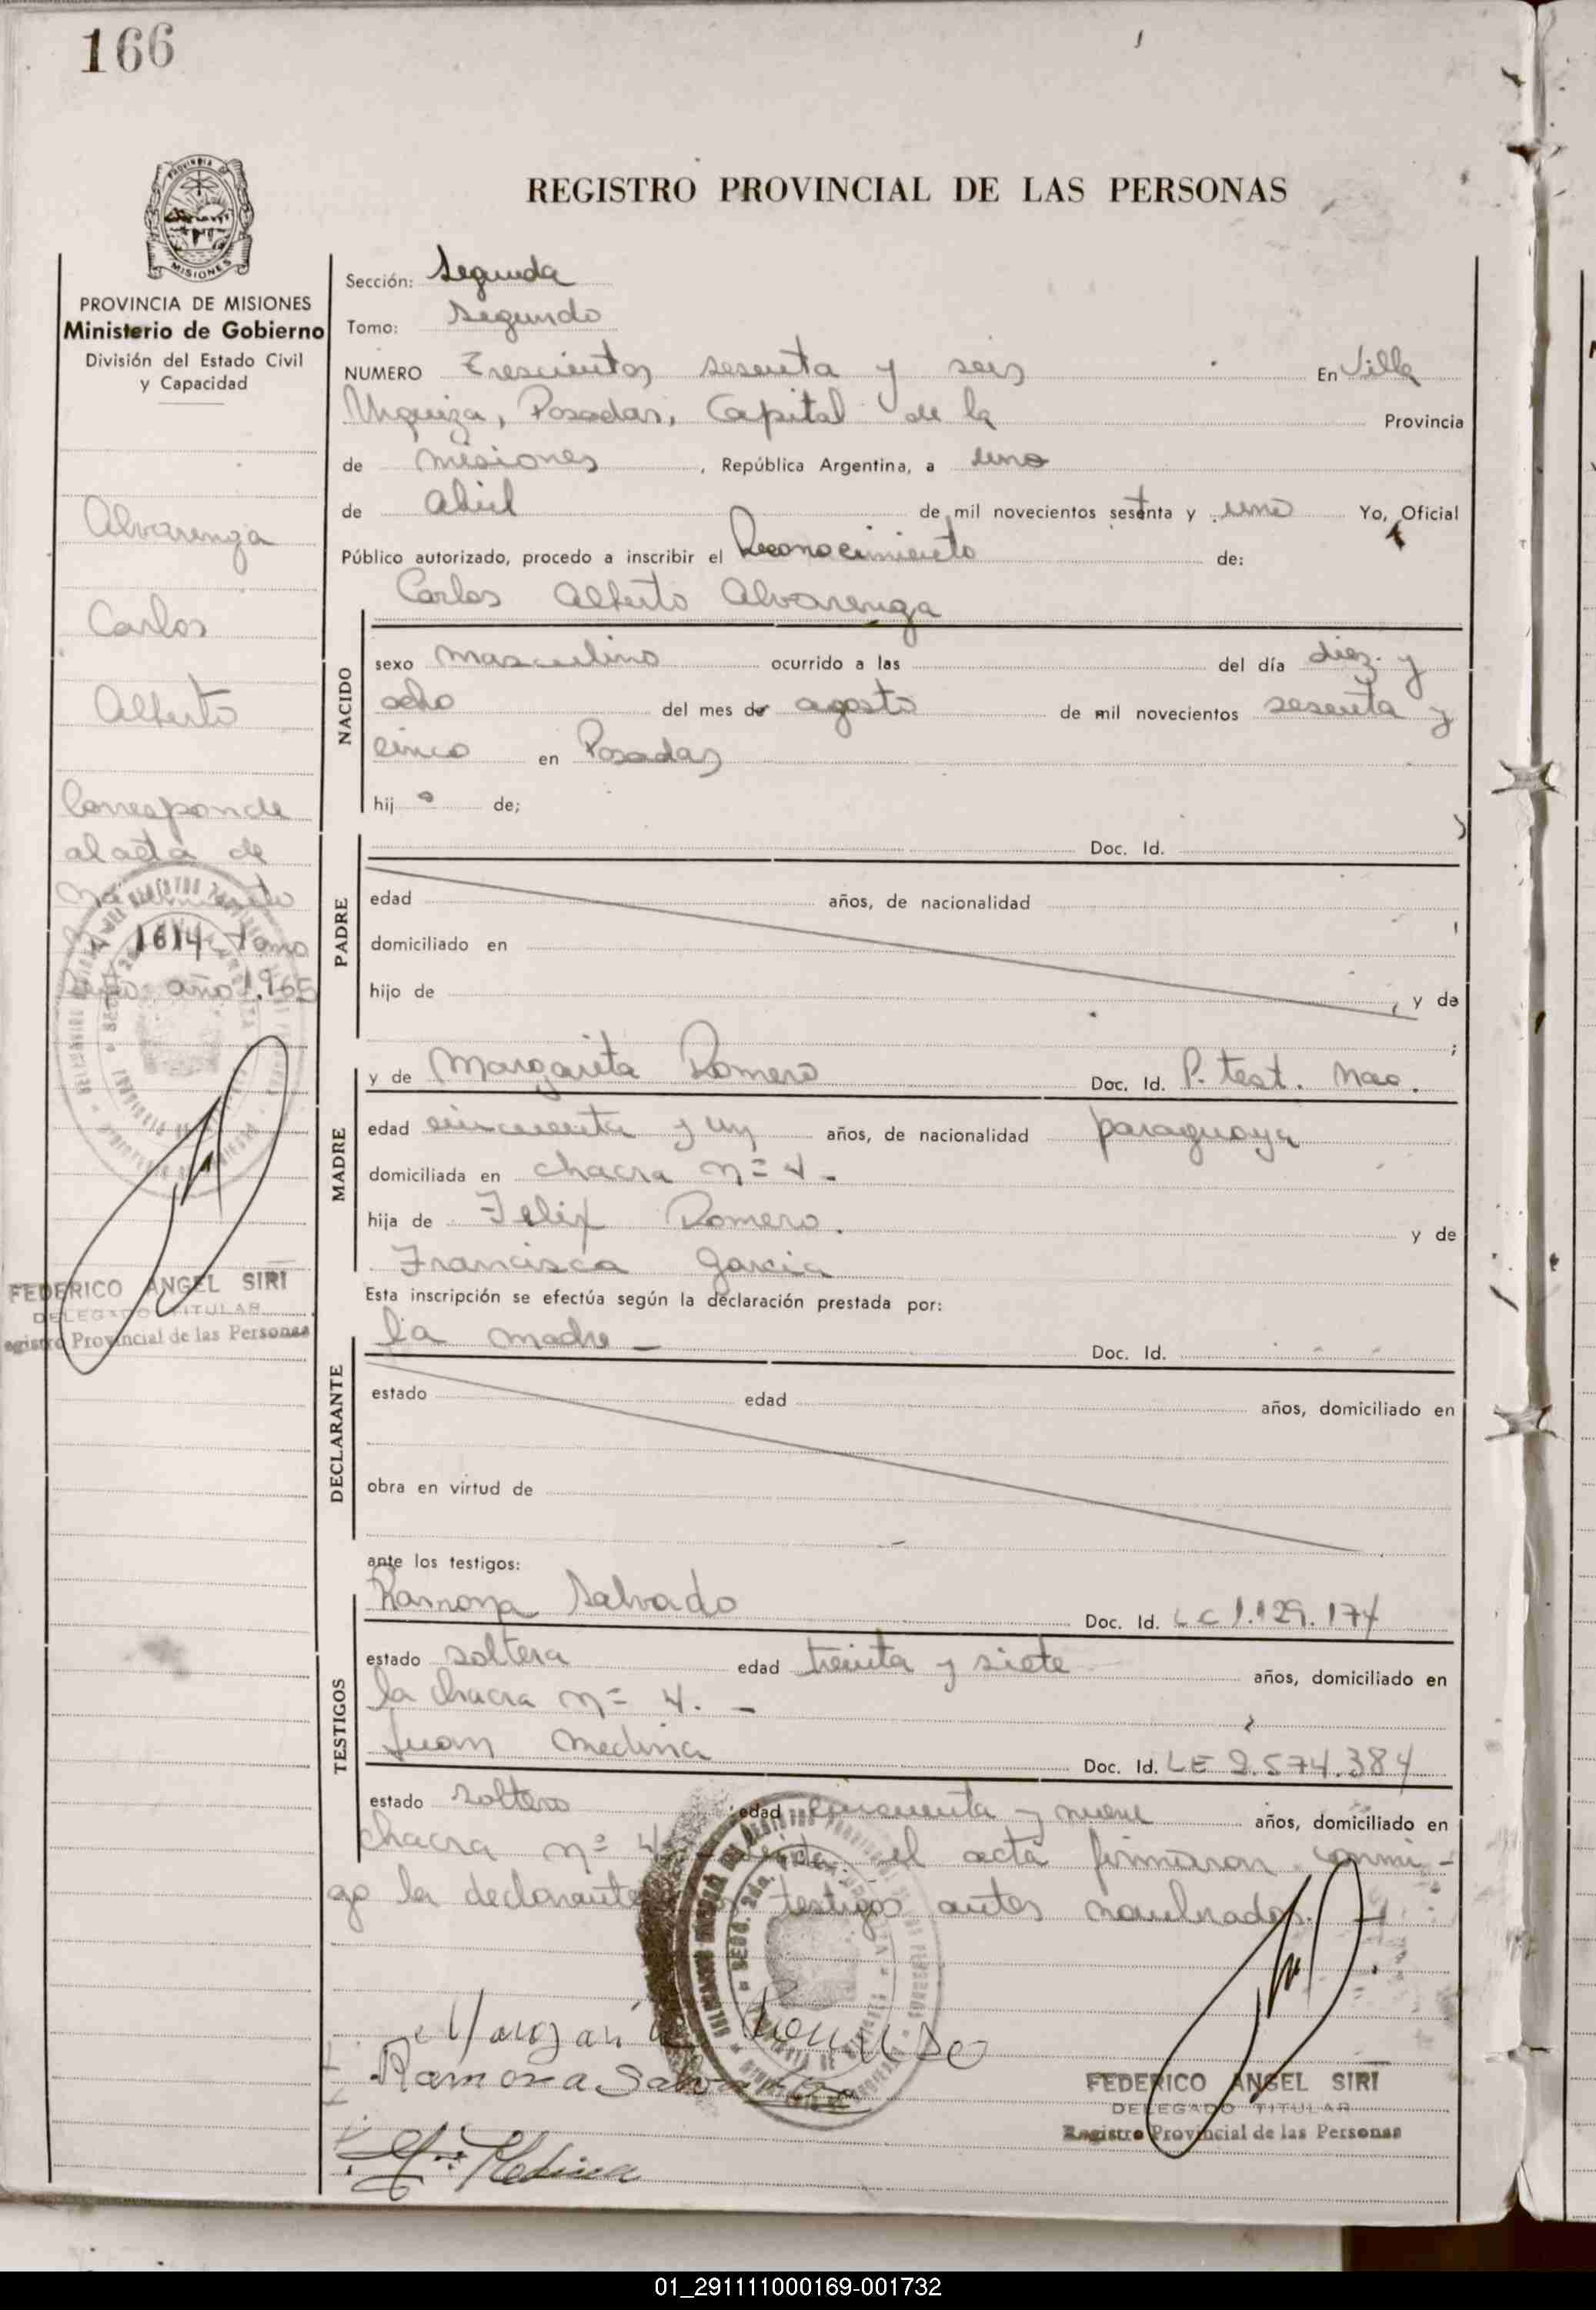 166
REGISTRO PROVINCIAL DE LAS PERSONAS
MISIONES
PROVINCIA DE MISIONES
Ministerio de Gobierno
División del Estado Civil
y Capacidad
Alvarenga
Carlos
Alberto
Corresponde
al acta de
1614 tomo
año 1.965
FEDERICO ANGEL SIRI
DELEGADO TITULAR
Registro Provincial de las Personas
Sección: Segunda
Tomo: Segundo
NUMERO Trescientos sesenta y seis En Villa
Urquiza, Posadas, Capital de la Provincia
de Misiones , República Argentina, a uno
de abril de mil novecientos setenta y uno Yo, Oficial
Público autorizado, procedo a inscribir el Reconocimiento de:
Carlos Alberto Alvarenga
NACIDO
sexo masculino ocurrido a las del día diez y
ocho del mes de agosto de mil novecientos sesenta y
cinco en Posadas
hij o de;
PADRE
Doc. Id.
edad años, de nacionalidad
domiciliado en
hijo de , y de
;
MADRE
y de Margarita Romero Doc. Id. P. test. Nac.
edad cincuenta y un años, de nacionalidad paraguaya
domiciliada en chacra nº 4 -
hija de Felix Romero. y de
Francisca Garcia
Esta inscripción se efectúa según la declaración prestada por:
DECLARANTE
la madre — Doc. Id.
estado edad años, domiciliado en
obra en virtud de
ante los testigos:
TESTIGOS
Ramona Salvado Doc. Id. LC 1.129.174
estado soltera edad treinta y siete años, domiciliado en
la chacra nº 4. -
Juan Medina Doc. Id. LE 2.574.384
estado soltero edad cincuenta y nueve años, domiciliado en
chacra nº 4 el acta firmaron conmi-
go la declarante testigos antes nombrados.
Margarita Romero
Ramona Salvado
Medina
FEDERICO ANGEL SIRI
DELEGADO TITULAR
Registro Provincial de las Personas
01_291111000169-001732